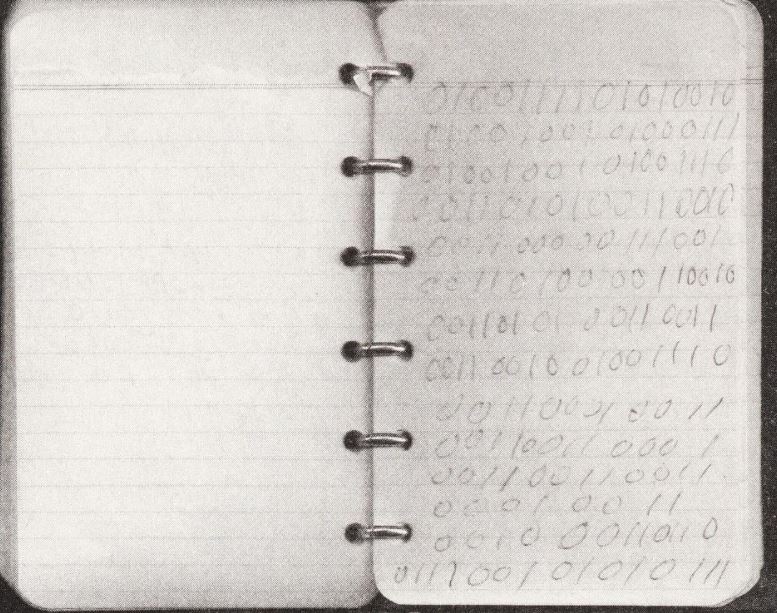 0100111101010010
0100 1001 01000111
01001001 01001110
0011010100110010
0011 000 00 111001
00110100 00110010
001101 01 00110011
0011 0010 01001110
00110001 00 11
00110011 000 1
0011 0011 0011
0001 00 11
0010 00110110
0111001 01010111